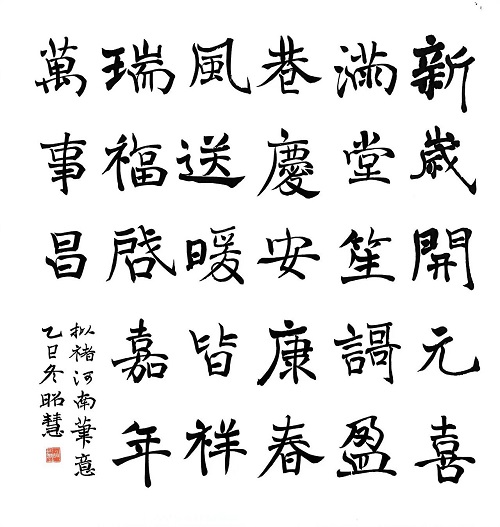 新歲開元喜
滿堂笙謌盈
巷慶安康春
風送暖皆祥
瑞福啟嘉年
萬事昌
拟褚河南筆意
乙巳冬昭慧